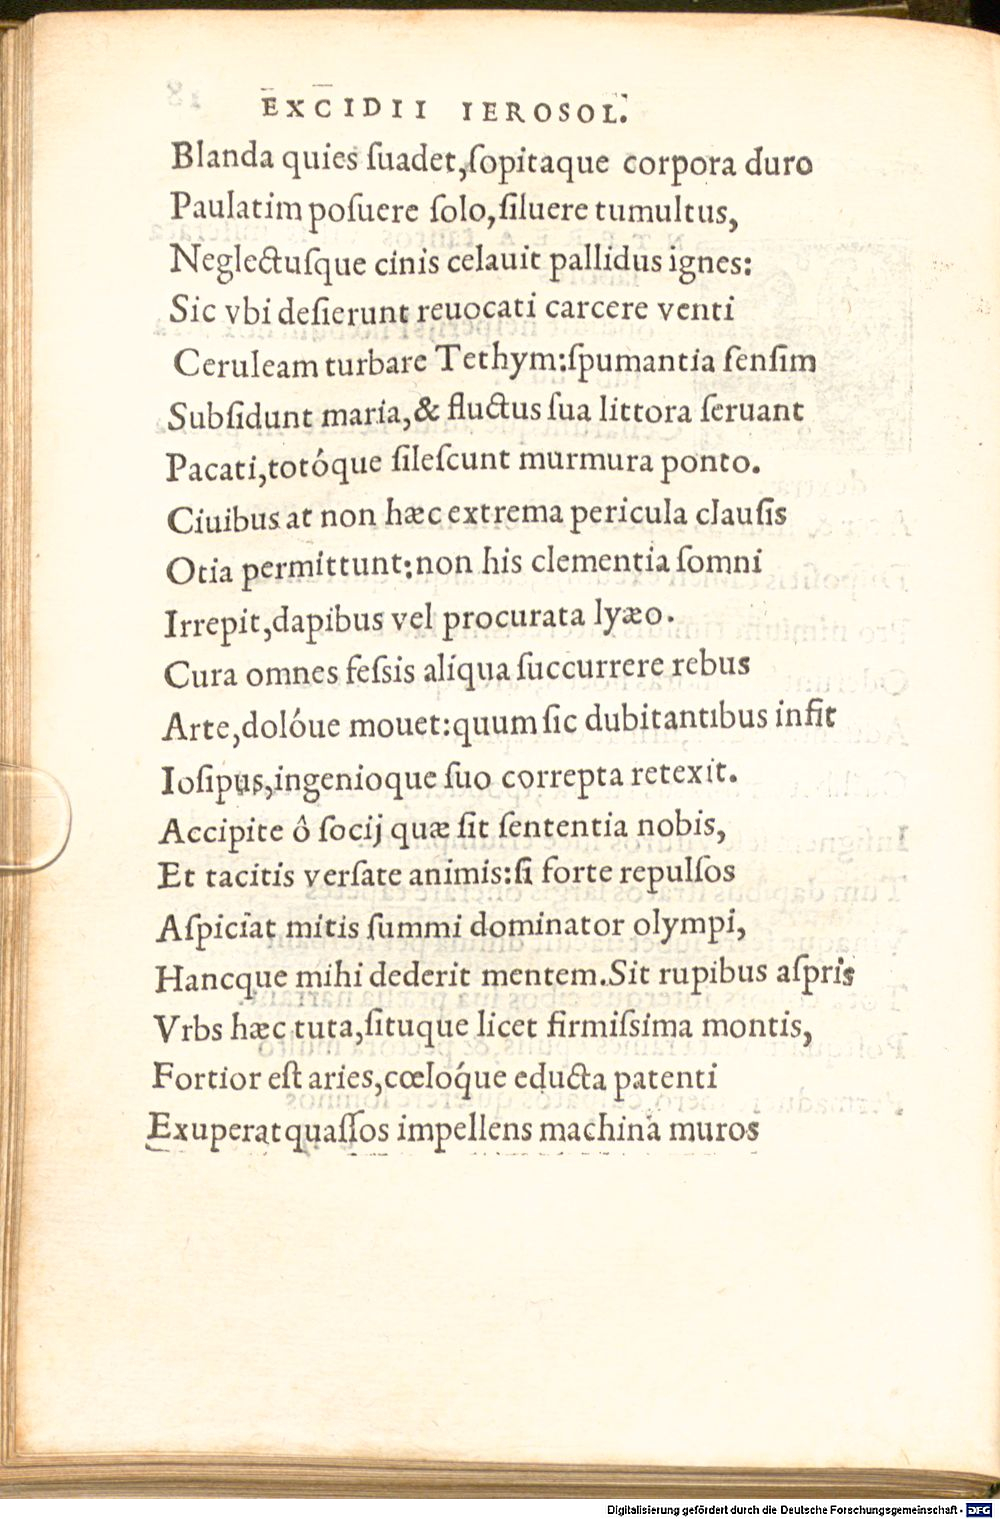 EXCIDII IEROSOL.
Blanda quies ſuadet,ſopitaque corpora duro
Paulatim poſuere ſolo,ſiluere tumultus,
Neglectuſque cinis celauit pallidus ignes:
Sic vbi deſierunt reuocati carcere venti
Ceruleam turbare Tethym:ſpumantia ſenſim
Subſidunt maria,& fluctus ſua littora ſeruant
Pacati,totóque ſileſcunt murmura ponto.
Ciuibus at non hæc extrema pericula clauſis
Otia permittunt:non his clementia ſomni
Irrepit,dapibus vel procurata lyæo.
Cura omnes feſsis aliqua ſuccurrere rebus
Arte,dolóue mouet:quum ſic dubitantibus infit
Ioſipus,ingenioque ſuo correpta retexit.
Accipite ô ſocij quæ ſit ſententia nobis,
Et tacitis verſate animis:ſi forte repulſos
Aſpiciat mitis ſummi dominator olympi,
Hancque mihi dederit mentem.Sit rupibus aſpris
Vrbs hæc tuta,ſituque licet firmiſsima montis,
Fortior eſt aries,cœlóque educta patenti
Exuperat quaſſos impellens machina muros
Digitalisierung gefördert durch die Deutsche Forschungsgemeinschaft - DFG